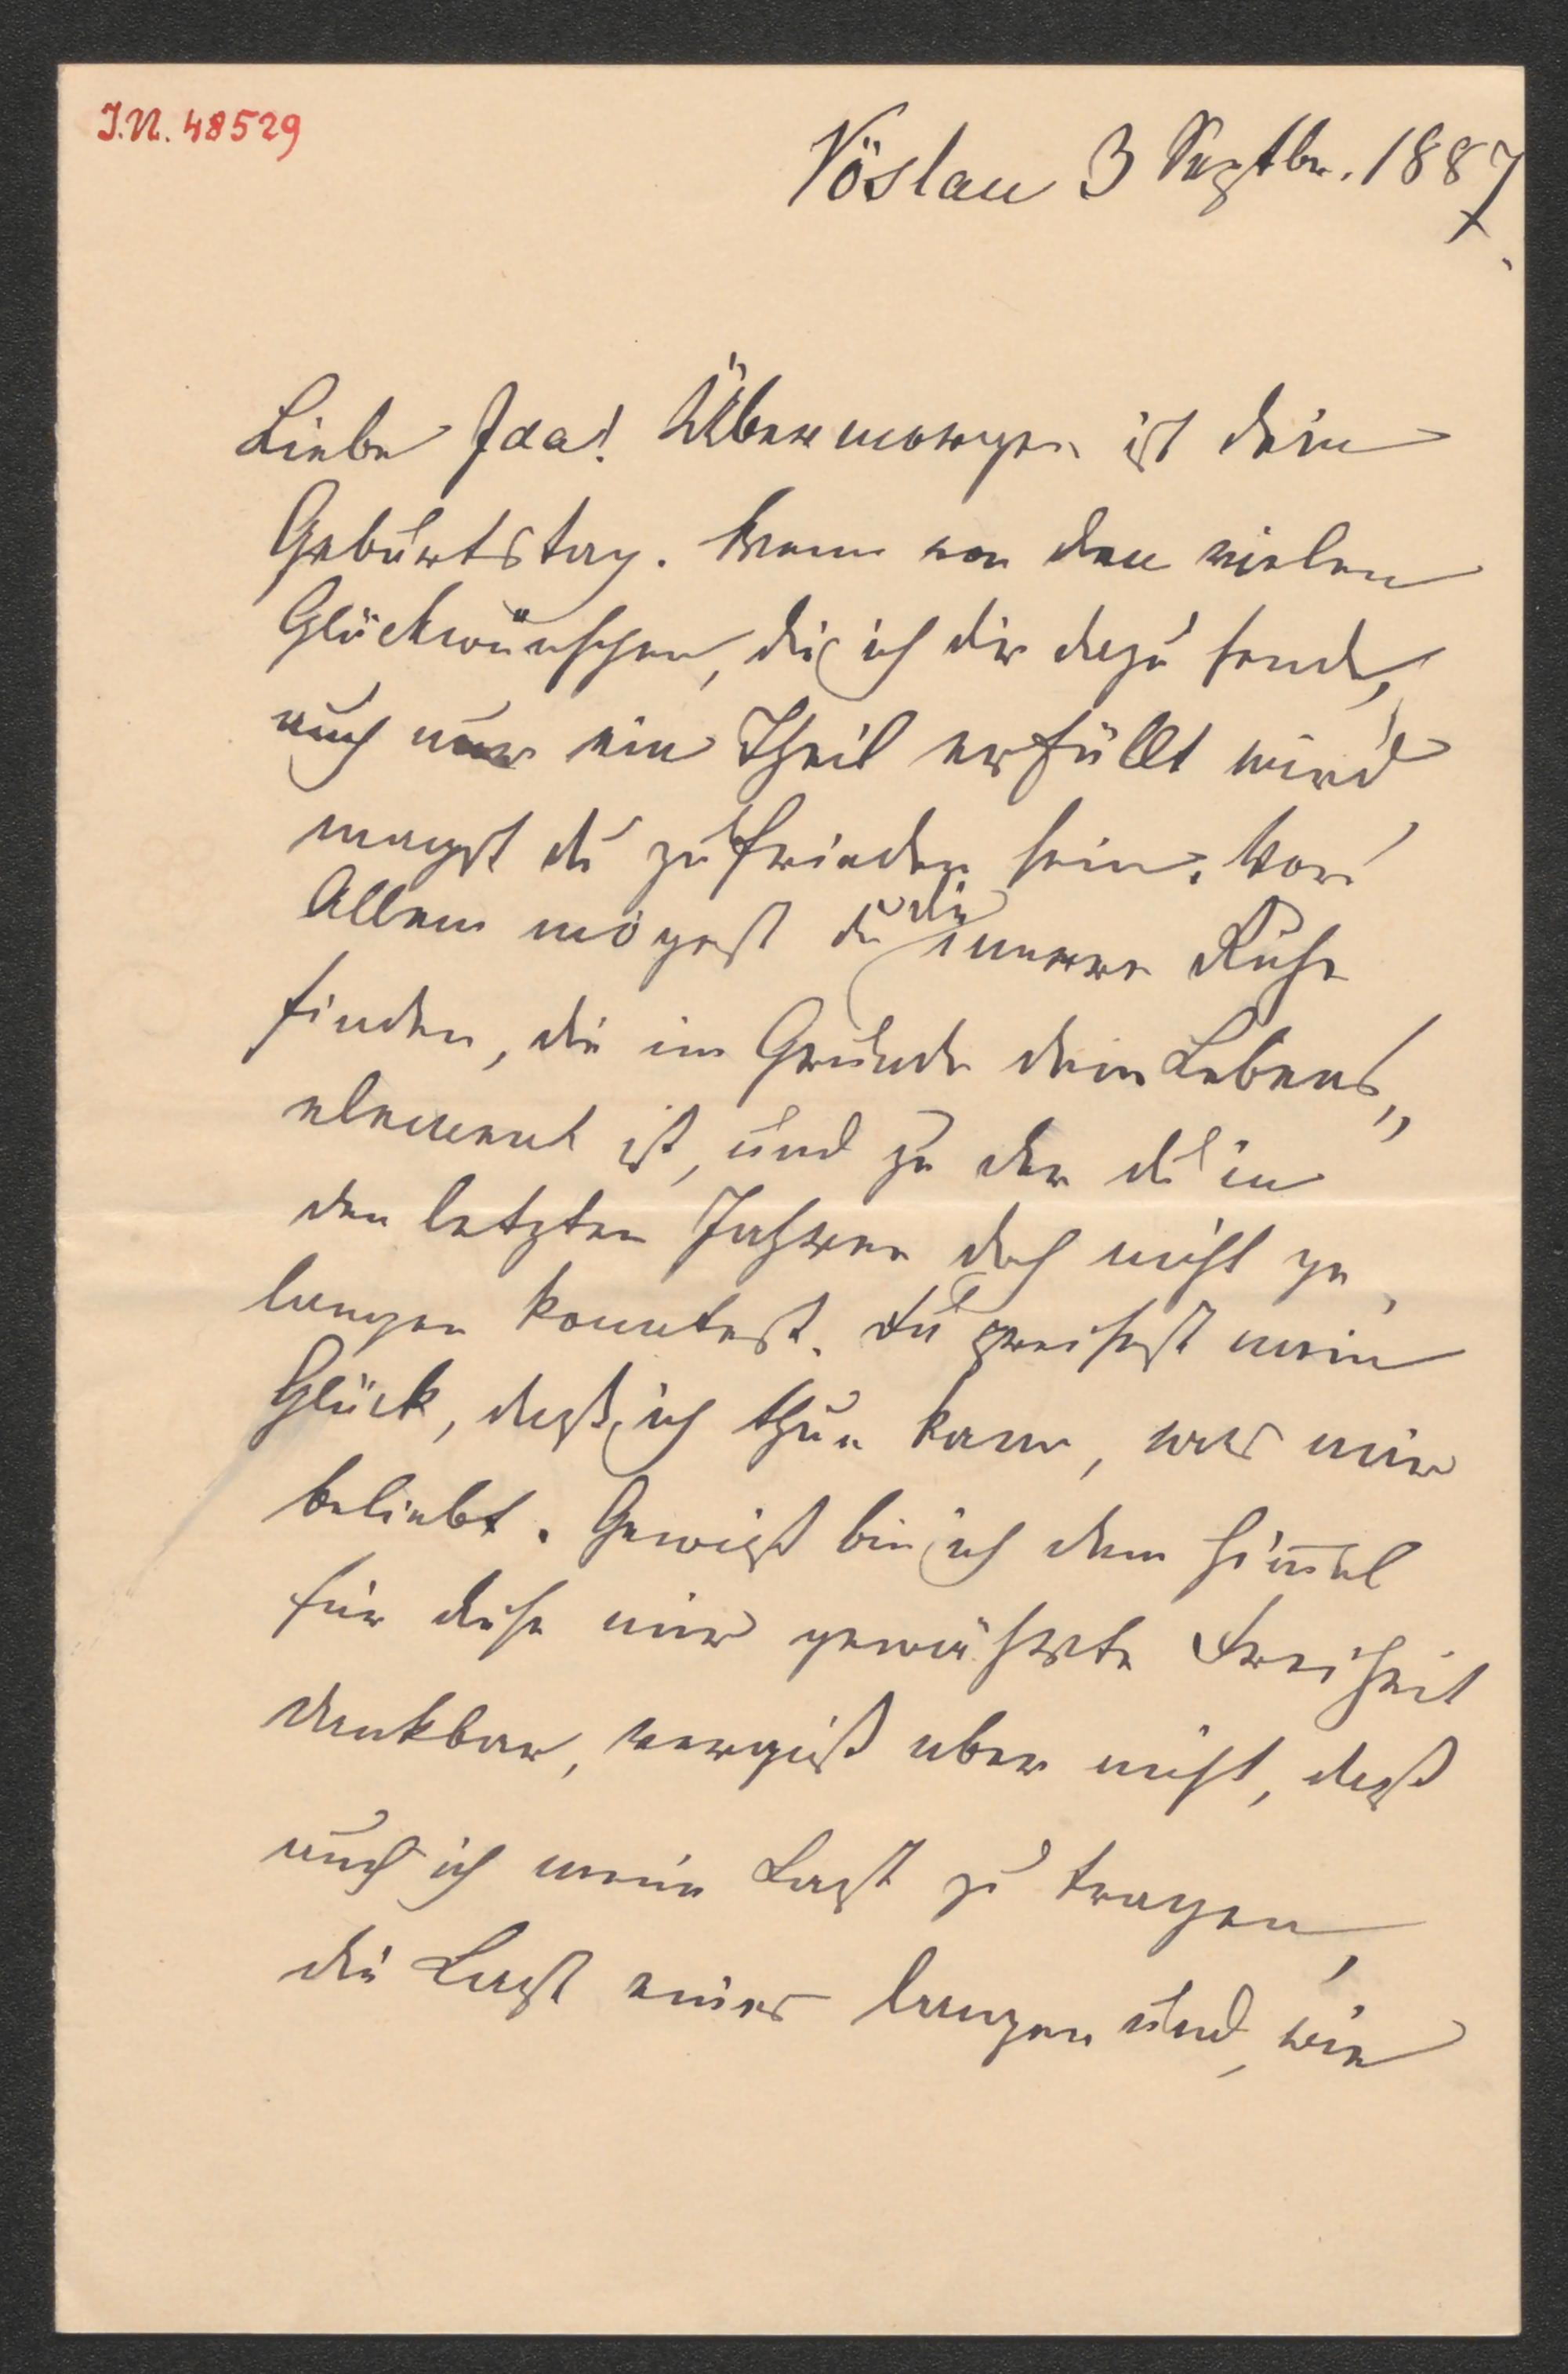 J.N. 48529
Vöslau 3 Septbr. 1887.
Liebe Ida! Übermorgen ist dein
Geburtstag. Wenn von den vielen
Glückwünschen, die ich dir dazu sende,
auch nur ein Theil erfüllt wird
magst du zufrieden sein. Vor
Allem mögest du die innere Ruhe
finden, die im Grunde dein Lebens„
element ist, und zu der du in
den letzten Jahren doch nicht ge„
langen konntest. Du preisest mein
Glück, daß ich thun kann, was mir
beliebt. Gewiß bin ich dem Him̅el
für diese mir gewährte Freiheit
dankbar, vergiß aber nicht, daß
auch ich meine Last zu tragen,
die Last eines langen und, wie